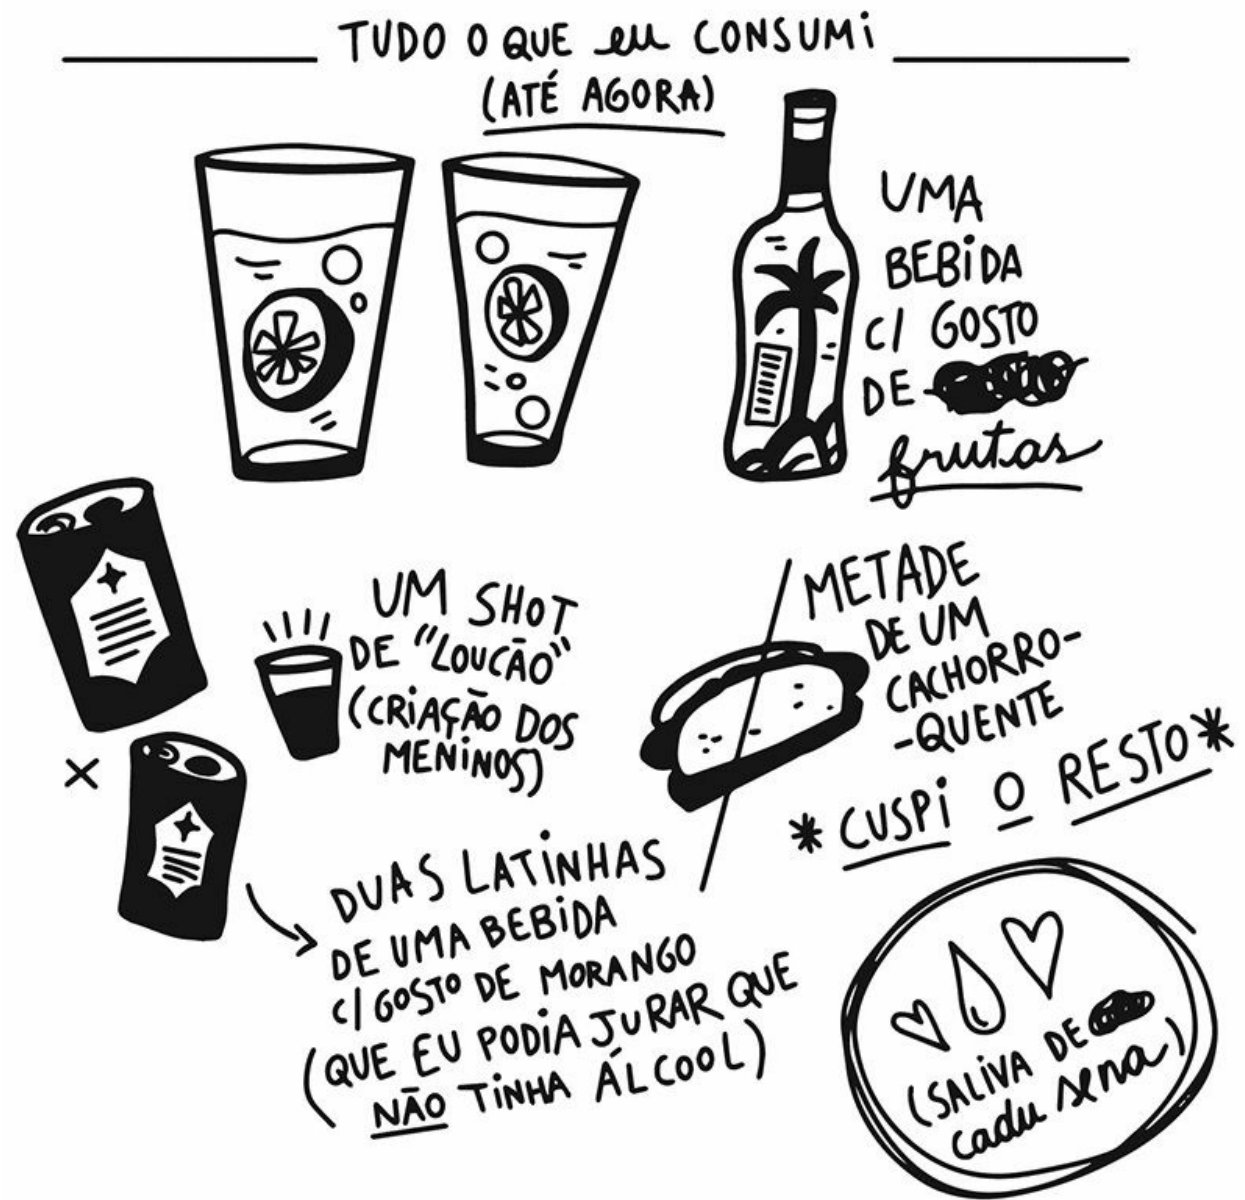 TUDO O QUE eu CONSUMi
(ATÉ AGORA)
UMA
BEBiDA
C/ GOSTO
DE
frutas
UM SHOT
DE "LOUCÃO"
(CRiAÇÃO DOS
MENiNOS)
METADE
DE UM
CACHORRO-
-QUENTE
*CUSPi O RESTO*
X
DUAS LATiNHAS
DE UMA BEBiDA
C/ GOSTO DE MORANGO
(QUE EU PODiA JURAR QUE
NÃO TiNHA ÁLCOOL)
(SALiVA DE
cadu sena)